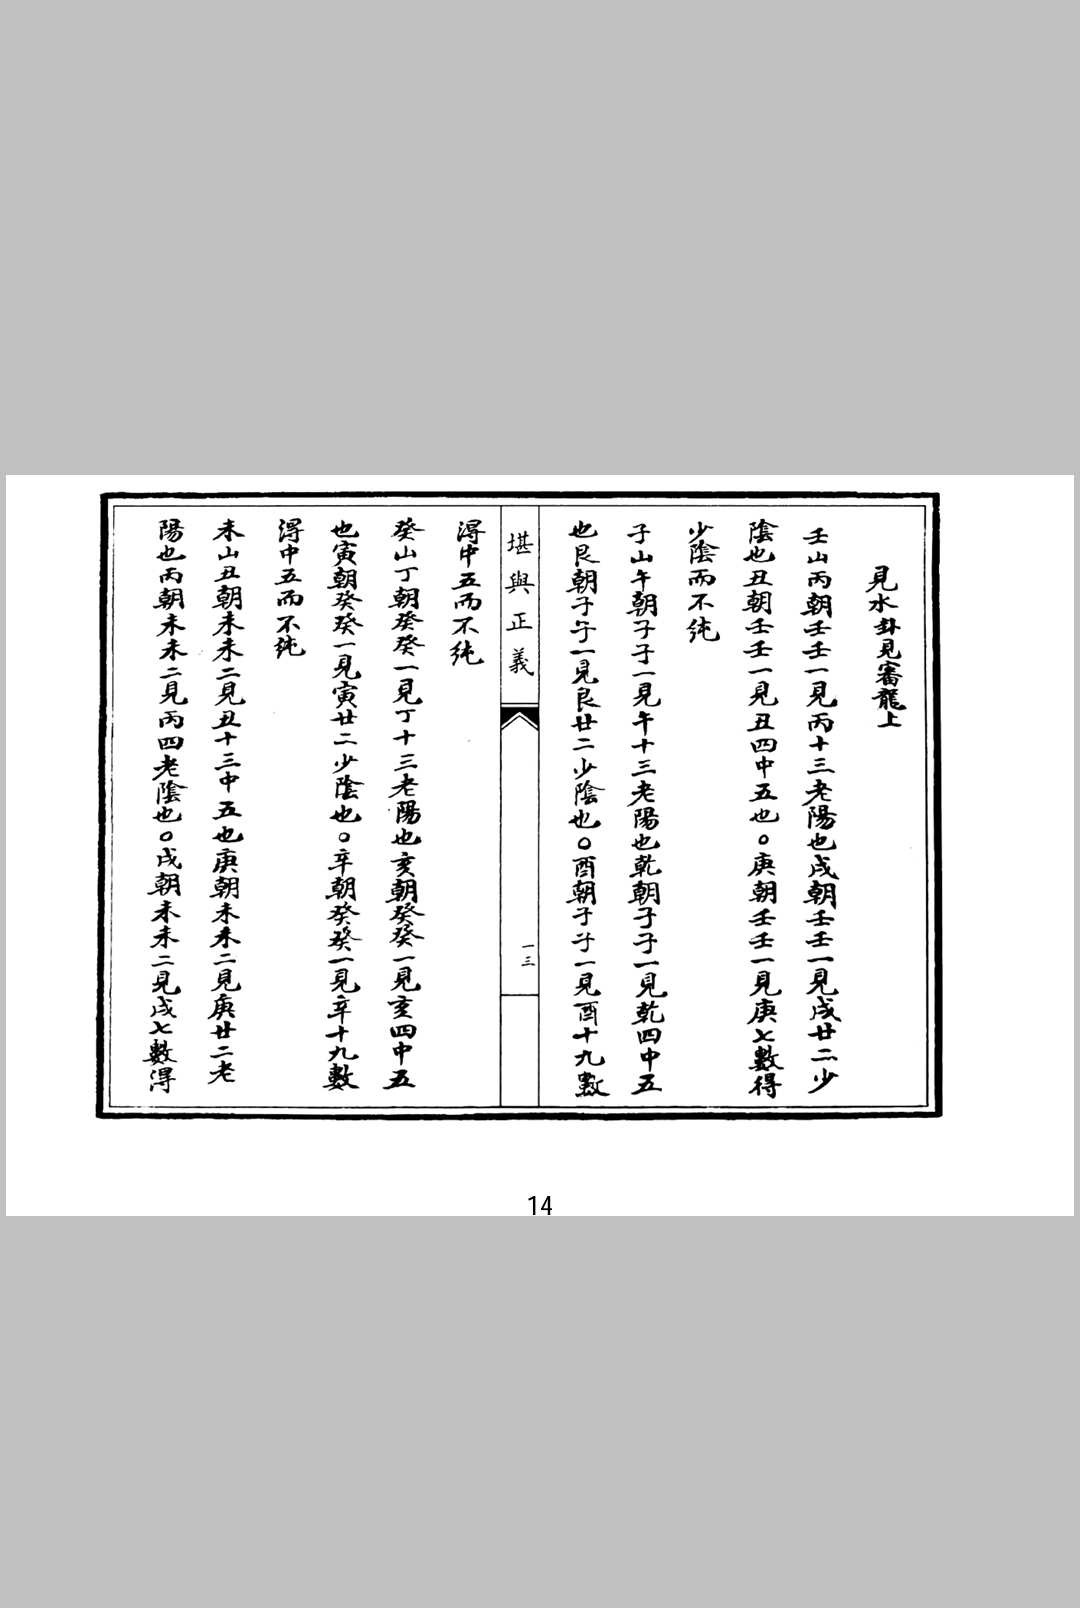 見水卦見審龍上
壬山丙朝壬壬一見丙十三老陽也戌朝壬壬一見戌廿二少
陰也丑朝壬壬一見丑四中五也○庚朝壬壬一見庚七數得
少陰而不純
子山午朝子子一見午十三老陽也乾朝子子一見乾四中五
也艮朝子子一見艮廿二少陰也○酉朝子子一見酉十九數
堪與正義
一三
得中五而不純
癸山丁朝癸癸一見丁十三老陽也亥朝癸癸一見亥四中五
也寅朝癸癸一見寅廿二少陰也○辛朝癸癸一見辛十九數
得中五而不純
未山丑朝未未二見丑十三中五也庚朝未未二見庚廿二老
陽也丙朝未未二見丙四老陰也○戌朝未未二見戌七數得
14